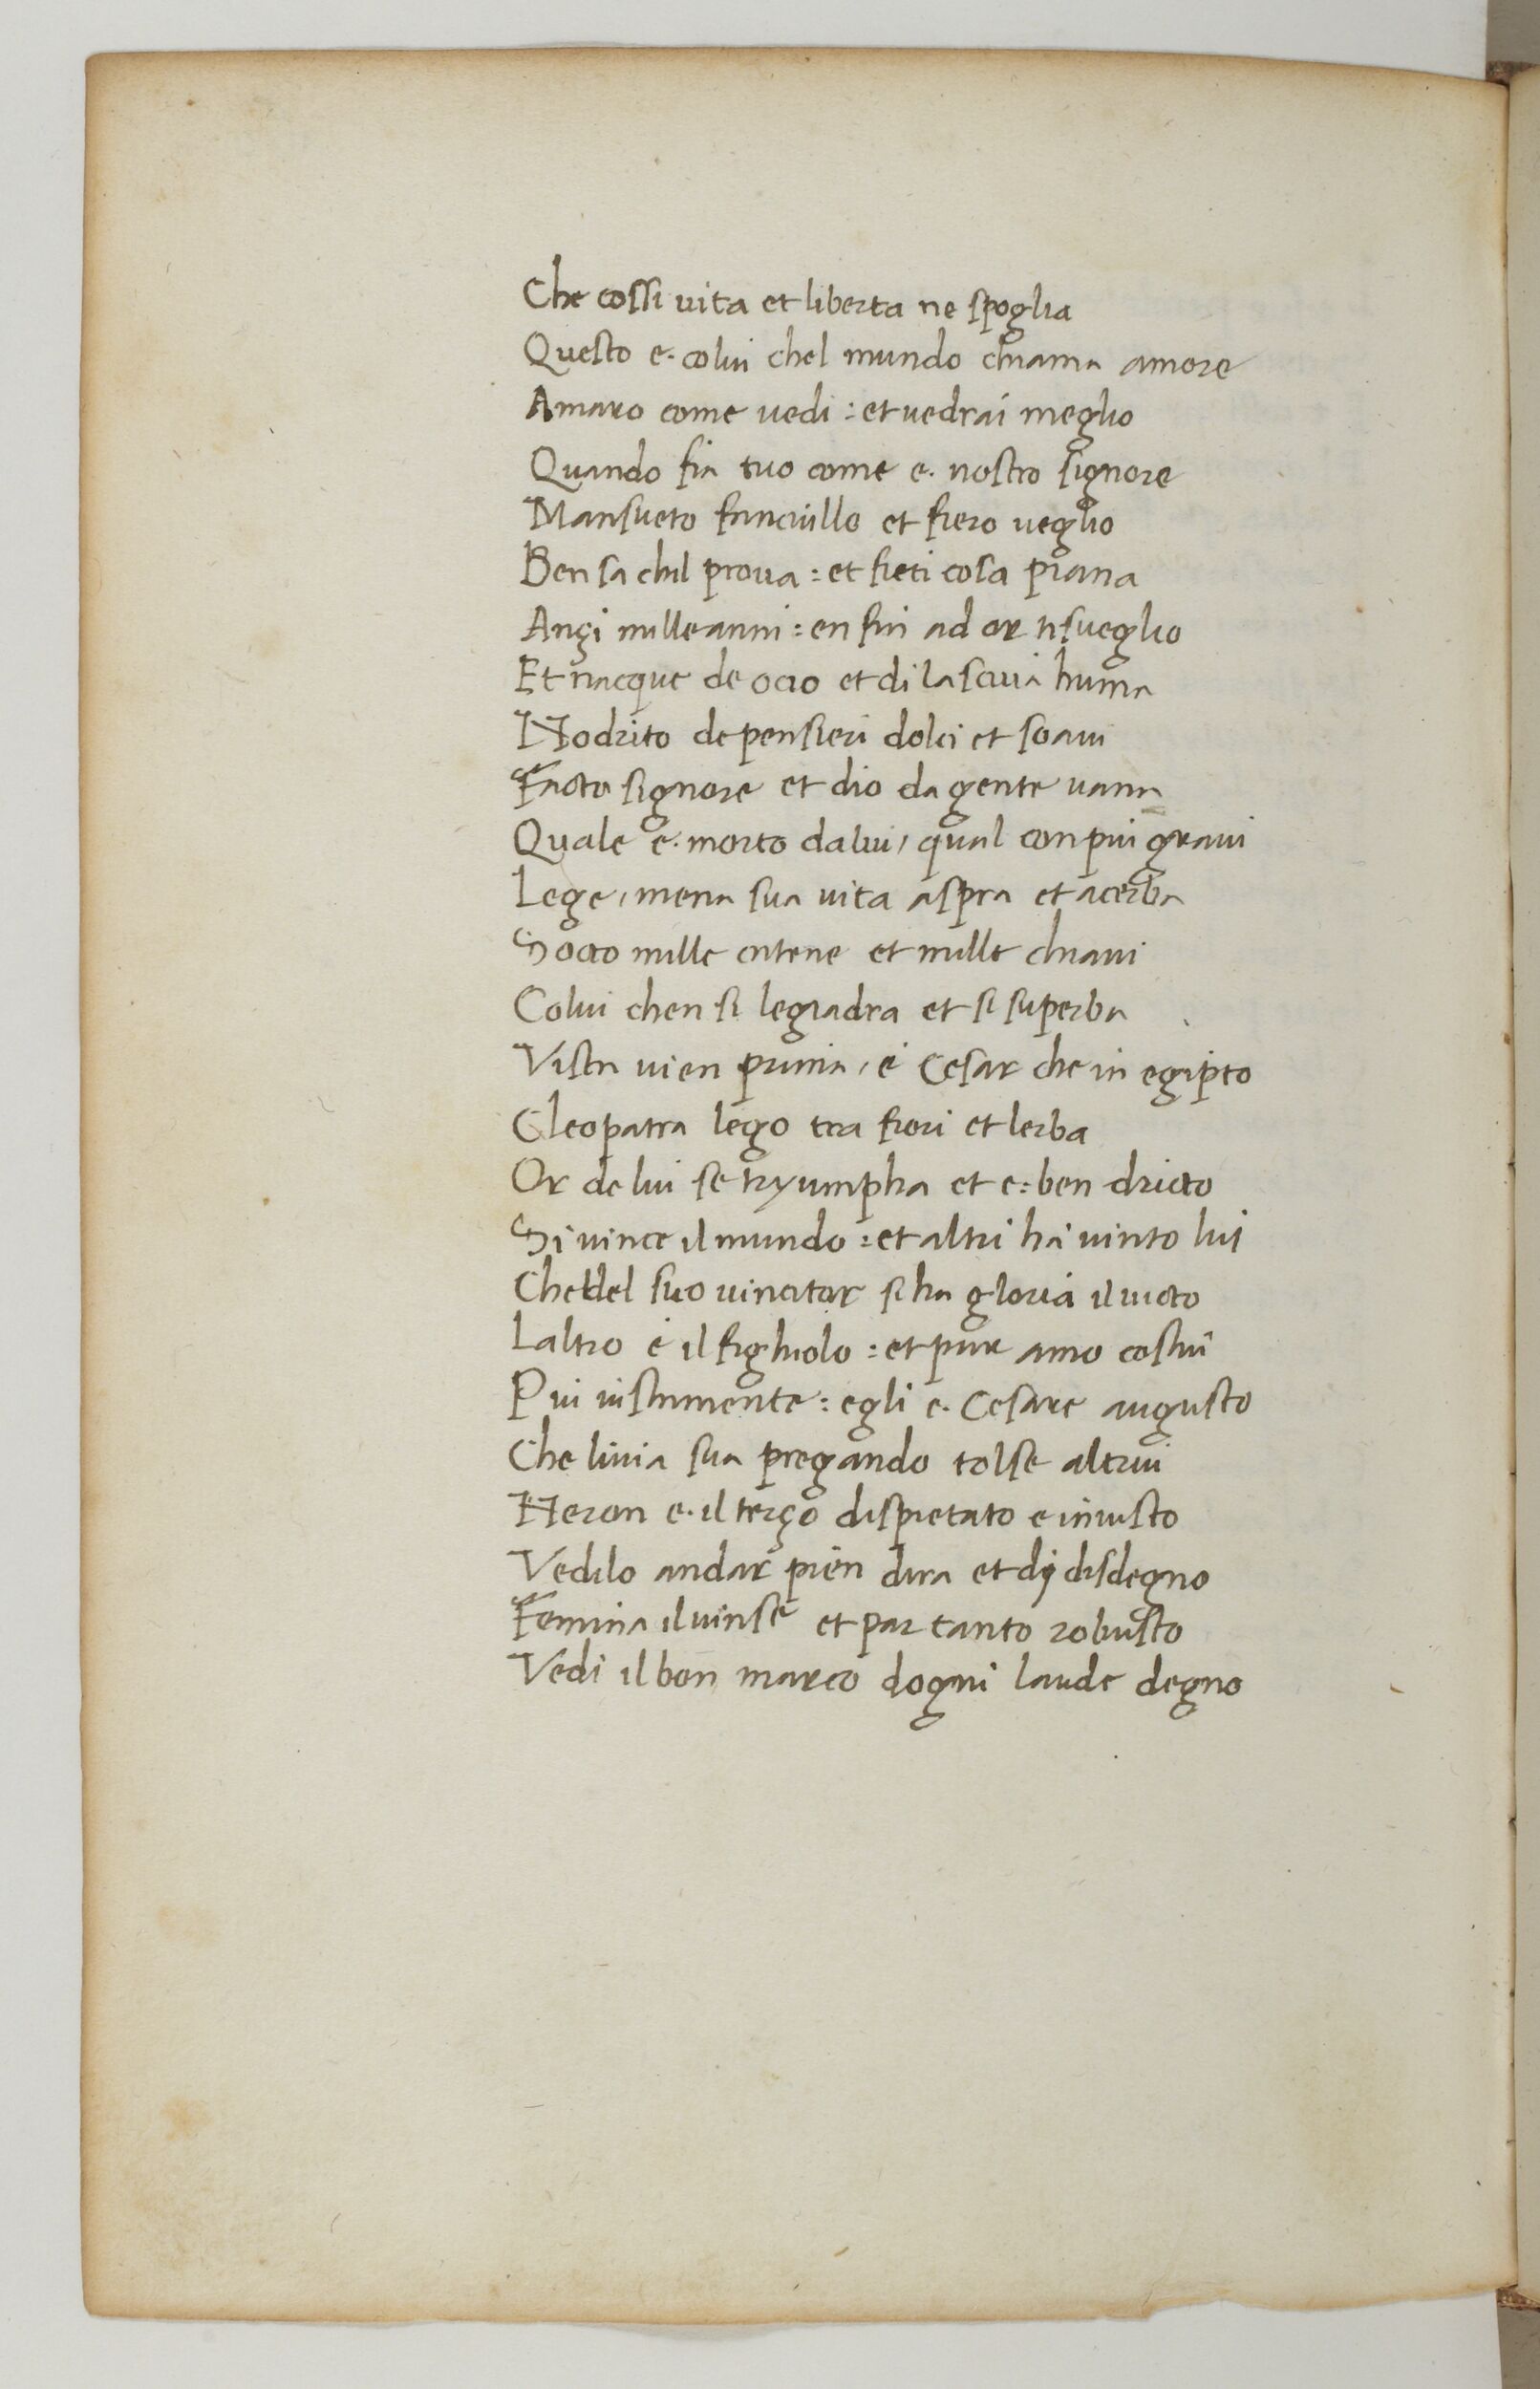 Che cossi vita et liberta ne spoglia
Questo e. colui chel mundo chiama amore
Amaro come vedi : et vedrai meglio
Quando fia tuo come e. nostro signore
Mansueto fanciullo et fiero veglio
Ben sa chil prova : et fieti cosa piana
Ançi mille anni : en fin ad or ti sveglio
Et nacque de ocio et di lascivia huma
Nodrito de pensieri dolci et soavi
Facto signore et dio da gente vana
Quale e. morto da lui, qual con piu gravi
Lege, mena sua vita aspra et acerba
Socto mille catene et mille chiavi
Colui chen si legiadra et si superba
Vista vien prima, é Cesar che in egipto
Cleopatra lego tra fiori et lerba
Or de lui se tryumpha et e: ben dricto
Si vince il mundo : et altri há vinto lui
Che del suo vincitor si ha gloria il victo
Laltro é il figliuolo : et pur amo costui
Piu iustamente : egli e. Cesare augusto
Che livia sua pregando tolse altrui
Neron e. il terço dispietato e iniusto
Vedilo andar pien dira et di disdegno
Femina il vinse et par tanto robusto
Vedi il bon marco dogni laude degno